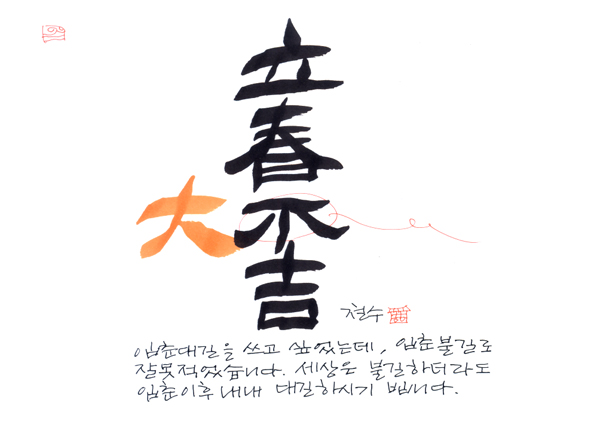 立
春
大 不
吉
철수
입춘대길을 쓰고 싶었는데, 입춘불길로
잘못적었습니다. 세상은 불길하더라도
입춘이후내내 대길하시기 빕니다.